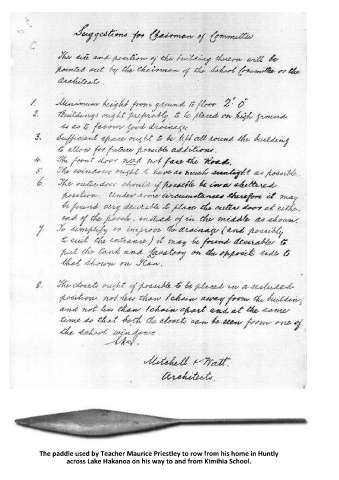 Suggestions for Chairman of Committee
The site and position of the building thereon will be
pointed out by the chairman of the School Committee or the
Architects.
1. Minimum height from ground to floor 2' 0"
2. Buildings ought preferably to be placed on high ground
so as to favour good drainage
3. Sufficient space ought to be left all round the building
to allow for future possible additions.
4. The front door need not face the Road.
5. The windows ought to have as much sunlight as possible.
6. The outer door should if possible be in a sheltered
position. Under some circumstances therefore it may
be found very desirable to place the outer door at either
end of the porch, instead of in the middle as shown.
7. To simplify or improve the drainage (and possibly
to suit the entrance) it may be found desirable to
put the tank and Lavatory on the opposite side to
that shown on Plan.
8. The closets ought if possible to be placed in a secluded
position not less than 1 chain away from the building,
and not less than 1 chain apart and at the same
time so that both the closets can be seen from one of
the school windows.
Mitchell & Watt.
Architects.
The paddle used by Teacher Maurice Priestley to row from his home in Huntly
across Lake Hakanoa on his way to and from Kimihia School.